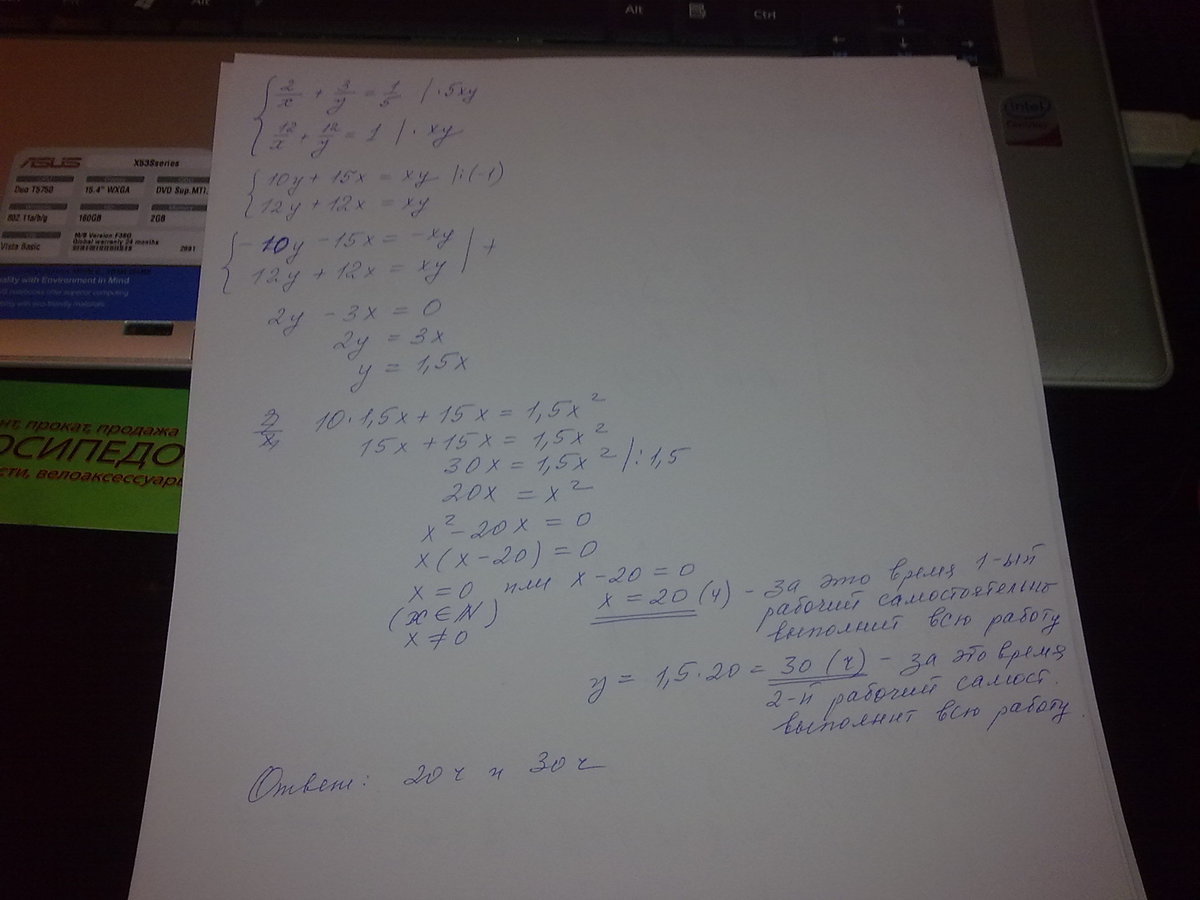 Alt
Alt
Ctrl
intel
ASUS
X53Sseries
Duo T5750
15.4" WXGA
DVD Sup.MTI.
802.11a/b/g
160GB
2GB
Vista Basic
M/B Version:F3SG
Global warranty 24 months
ality with Environment in Mind
нт, прокат, продажа
ОСИПЕДО
сти, велоаксессуары
{ 2/x + 3/y = 1/5 | · 5xy
12/x + 12/y = 1 | · xy
{ 10y + 15x = xy |:(-1)
12y + 12x = xy
{ -10y - 15x = -xy | +
12y + 12x = xy
2y - 3x = 0
2y = 3x
y = 1,5x
10·1,5x + 15x = 1,5x²
15x + 15x = 1,5x²
30x = 1,5x² |:1,5
20x = x²
x² - 20x = 0
x(x-20) = 0
x = 0 или x - 20 = 0
(x ∈ N)
x ≠ 0
x = 20 (ч) - за это время 1-ый
рабочий самостоятельно
выполнит всю работу
y = 1,5·20 = 30 (ч) - за это время
2-й рабочий самост.
выполнит всю работу.
Ответ: 20 ч и 30 ч